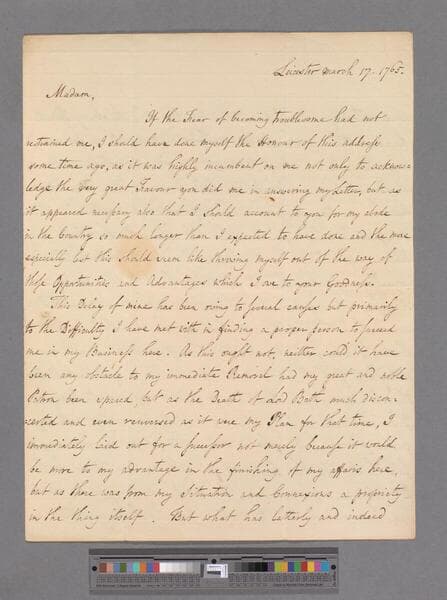 Leicester March 17. 1765.
Madam,
If the Fear of becoming troublesome had not
restrained me, I should have done myself the Honour of this address
some time ago, as it was highly incumbent on me not only to acknow-
ledge the very great Favour you did me in answering my Letter, but as
it appeared necessary also that I should account to you for my abode
in the Country so much longer than I expected to have done and the more
especially lest this should seem like throwing myself out of the way of
those Opportunities and Advantages which I owe to your Goodness.
This Delay of mine has been owing to several causes but primarily
to the Difficulty I have met with in finding a proper person to succeed
me in my Business here. As this ought not, neither could it have
been any obstacle to my immediate Removal had my great and noble
Patron been spared, but as the Death of Lord Bath much discon-
certed and even reversed as it were my Plan for that time, I
immediately laid out for a successor not merely because it would
be more to my advantage in the finishing of my affairs here,
but as there was from my Situation and Connexions a propriety
in the thing itself. But what has latterly and indeed